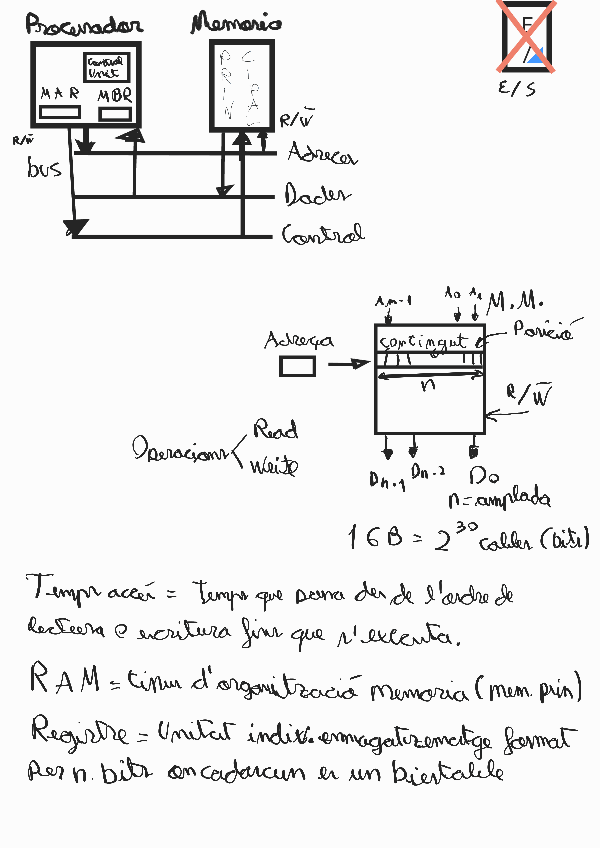 Procesador Memoria
Control
Unit
MAR MBR
PRIN
CIPAL
E/S
R/W̄
R/W̄
bus
Adreces
Dades
Control
An-1 A0 A1 M.M.
Posició
contingut
Adreça
n
R/W̄
Operacions
Read
Write
Dn-1 Dn-2 D0
n=amplada
1GB = 2³⁰ cel·les (bits)
Temps accés = Temps que passa des de l'ordre de
lectura o escritura fins que s'executa.
RAM = tipus d'organització memoria (mem. prin)
Registre = Unitat indiv. emmagatzematge format
per n. bits on cadascun es un biestable